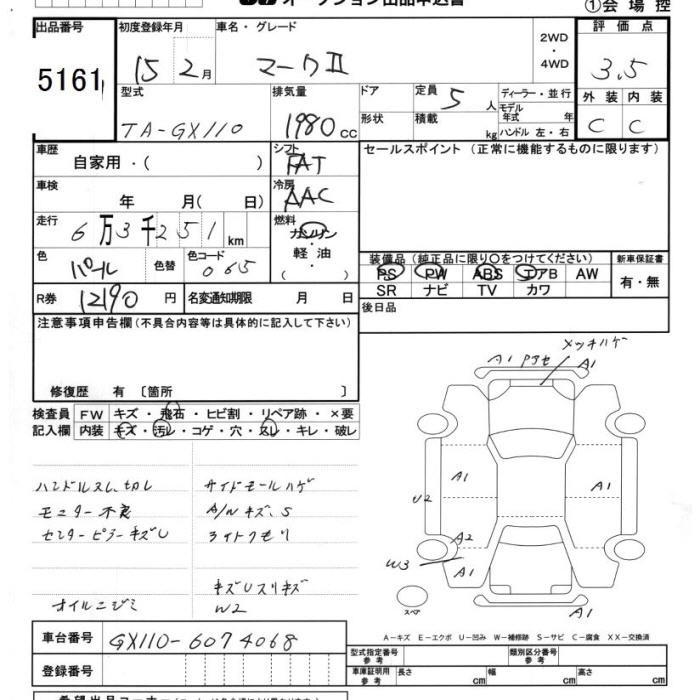 オークション出品申込書
①会場控
出品番号 初度登録年月 車名・グレード 2WD ・ 4WD 評価点
5161 15 2月 マークⅡ 3.5
型式 排気量 ドア 定員 5人 ディーラー・並行 外装 内装
TA-GX110 1980cc 形状 積載 kg モデル年式 年 ハンドル 左・右 C C
車歴 シフト セールスポイント (正常に機能するものに限ります)
自家用・( ) FAT
車検 冷房
年 月( 日) AAC
走行 燃料
6万3千251km ガソリン
色 色替 色コード 軽油
パール 065 ・( )
装備品(純正品に限り〇をつけてください) 新車保証書
PS PW ABS エアB AW 有・無
SR ナビ TV カワ
R券 12190円 名変通知期限 月 日 後日品
注意事項申告欄(不具合内容等は具体的に記入して下さい)
修復歴 有 〔箇所 〕
検査員 FW キズ・飛石・ヒビ割・リペア跡・×要
記入欄 内装 キズ・汚レ・コゲ・穴・スレ・キレ・破レ
メッキハゲ
A1 A1
ハンドルスレ、切レ サイドモールハゲ
モニター不良 A/Nキズ、S
センターピラーキズU ライトクモリ
キズUスリキズ
オイルニジミ W2
A1 A1
U2
A2
W3 A1
スペア A1
A-キズ E-エクボ U-凹み W-補修跡 S-サビ C-腐食 XX-交換済
車台番号 GX110-6074068
型式指定番号 参考 類別区分番号 参考
登録番号 車庫証明用 参考 長さ cm 幅 cm 高さ cm